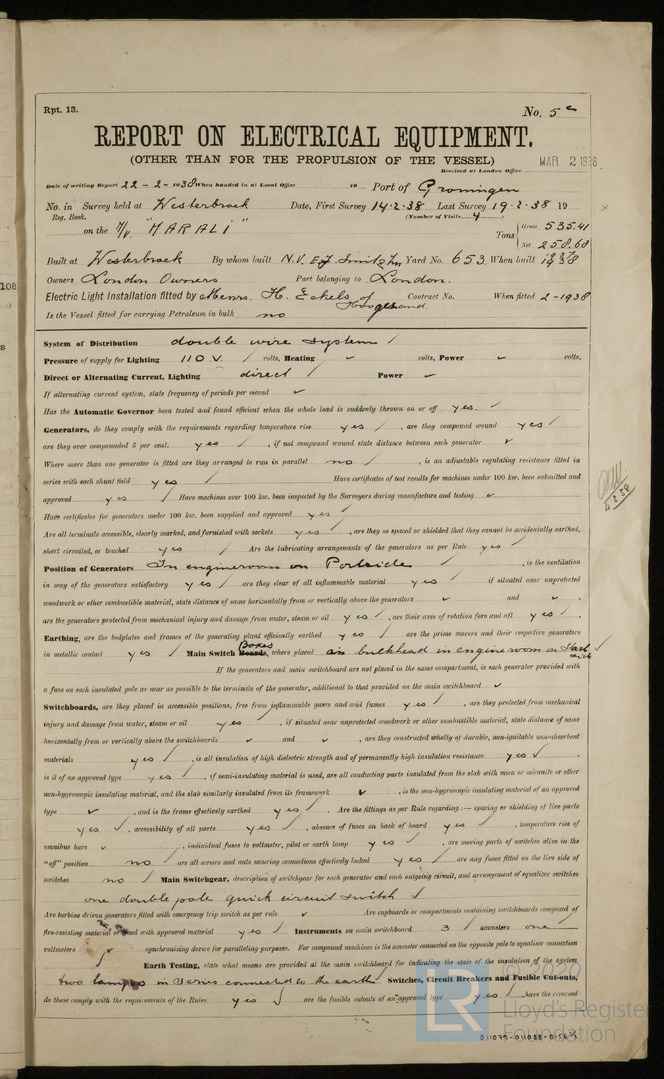 Rpt. 13.
No. 5c
REPORT ON ELECTRICAL EQUIPMENT.
(OTHER THAN FOR THE PROPULSION OF THE VESSEL)
MAR 2 1938
Received at London Office
Date of writing Report 22-2-1938 When handed in at Local Office 19 Port of Groningen
No. in Survey held at Westerbroek Date, First Survey 14.2.38 Last Survey 19.2.38 19
Reg. Book. (Number of Visits 4)
on the M/V "MARALI" Tons { Gross 535.41
Net 258.68
Built at Westerbroek By whom built N.V. E.J. Smit & Zn Yard No. 653 When built 1938
Owners London Owners Port belonging to London.
Electric Light Installation fitted by Messrs. H. Eekels of Hoogezand. Contract No. When fitted 2-1938
Is the Vessel fitted for carrying Petroleum in bulk no
System of Distribution double wire system /
Pressure of supply for Lighting 110 V. / volts, Heating ✓ volts, Power ✓ volts.
Direct or Alternating Current, Lighting direct / Power ✓
If alternating current system, state frequency of periods per second ✓
Has the Automatic Governor been tested and found efficient when the whole load is suddenly thrown on or off yes. /
Generators, do they comply with the requirements regarding temperature rise yes / , are they compound wound yes /
are they over compounded 5 per cent. yes / , if not compound wound state distance between each generator ✓
Where more than one generator is fitted are they arranged to run in parallel no / , is an adjustable regulating resistance fitted in
series with each shunt field yes / Have certificates of test results for machines under 100 kw. been submitted and
approved yes / Have machines over 100 kw. been inspected by the Surveyors during manufacture and testing ✓
Have certificates for generators under 100 kw. been supplied and approved yes /
Are all terminals accessible, clearly marked, and furnished with sockets yes / , are they so spaced or shielded that they cannot be accidentally earthed,
short circuited, or touched yes / Are the lubricating arrangements of the generators as per Rule yes /
Position of Generators In engineroom on Portside / , is the ventilation
in way of the generators satisfactory yes / are they clear of all inflammable material yes / if situated near unprotected
woodwork or other combustible material, state distance of same horizontally from or vertically above the generators ✓ and ✓ .
are the generators protected from mechanical injury and damage from water, steam or oil yes / , are their axes of rotation fore and aft yes / .
Earthing, are the bedplates and frames of the generating plant efficiently earthed yes / are the prime movers and their respective generators
in metallic contact yes / Main Switch Boxes Boards, where placed on bulkhead in engineroom on Starb side ✓
If the generators and main switchboard are not placed in the same compartment, is each generator provided with
a fuse on each insulated pole as near as possible to the terminals of the generator, additional to that provided on the main switchboard ✓
Switchboards, are they placed in accessible positions, free from inflammable gases and acid fumes yes / , are they protected from mechanical
injury and damage from water, steam or oil yes / , if situated near unprotected woodwork or other combustible material, state distance of same
horizontally from or vertically above the switchboards ✓ and ✓ , are they constructed wholly of durable, non-ignitable non-absorbent
materials yes / , is all insulation of high dielectric strength and of permanently high insulation resistance yes ✓
is it of an approved type yes / , if semi-insulating material is used, are all conducting parts insulated from the slab with mica or micanite or other
non-hygroscopic insulating material, and the slab similarly insulated from its framework ✓ , is the non-hygroscopic insulating material of an approved
type ✓ , and is the frame effectively earthed yes / . Are the fittings as per Rule regarding:— spacing or shielding of live parts
yes ✓ , accessibility of all parts yes / , absence of fuses on back of board yes / , temperature rise of
omnibus bars ✓ , individual fuses to voltmeter, pilot or earth lamp yes / , are moving parts of switches alive in the
"off" position no / are all screws and nuts securing connections effectively locked yes / are any fuses fitted on the live side of
switches no / Main Switchgear, description of switchgear for each generator and each outgoing circuit, and arrangement of equalizer switches
one double pole quick circuit switch /
Are turbine driven generators fitted with emergency trip switch as per rule ✓ Are cupboards or compartments containing switchboards composed of
fire-resisting material or lined with approved material yes / Instruments on main switchboard 3 / ammeters one
voltmeters ✓ synchronising device for paralleling purposes. For compound machines is the ammeter connected on the opposite pole to equaliser connection
Earth Testing, state what means are provided at the main switchboard for indicating the state of the insulation of the system
two lamps in series connected to the earth Switches, Circuit Breakers and Fusible Cut-outs,
do these comply with the requirements of the Rules yes / are the fusible cutouts of an approved type yes / have the reversed
4.3.38
108
s
© 2020
LR
Lloyd's Register
Foundation
011079-011088-0156 1/2